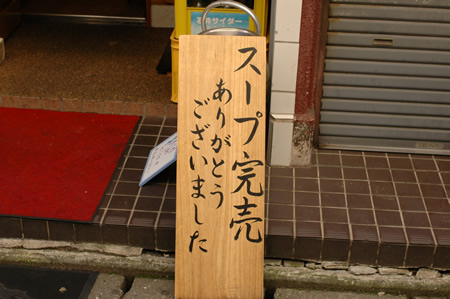 スープ完売
ありがとう
ございました
サイダー